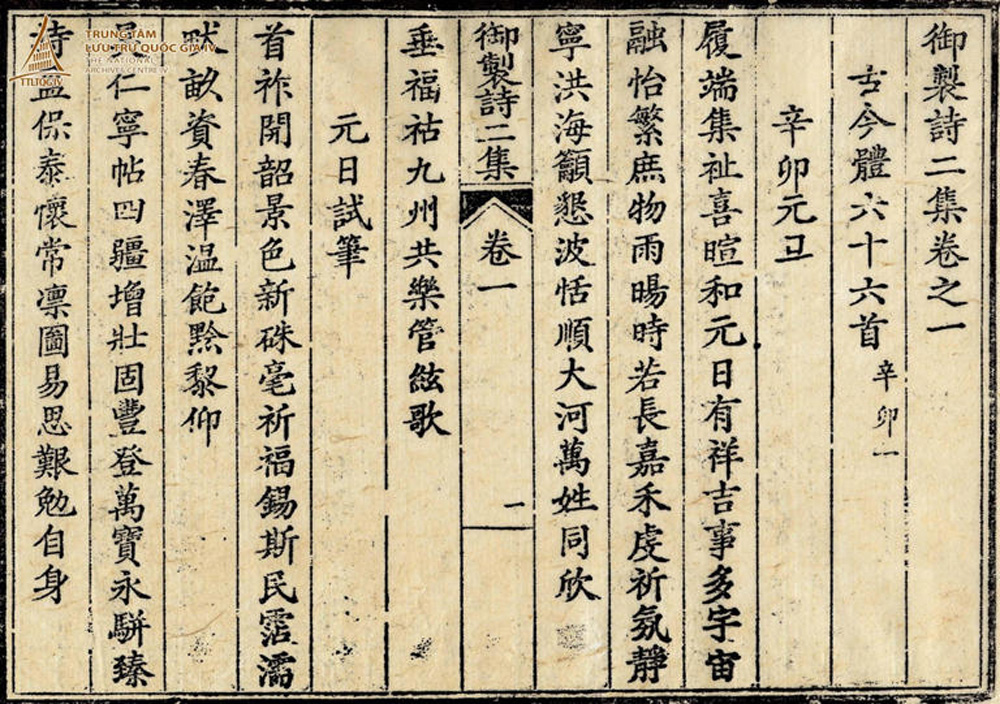 御製詩二集卷之一
古今體六十六首 辛卯一
辛卯元旦
履端集祉喜暄和元日有祥吉事多宇宙
融怡繁庶物雨暘時若長嘉禾虔祈氛靜
寧洪海籲懇波恬順大河萬姓同欣
御製詩二集 卷一 一
垂福祜九州共樂管絃歌
元日試筆
首祚開韶景色新硃毫祈福錫斯民霑濡
畎畝資春澤温飽黔黎仰
仁寧帖四疆增壯固豐登萬寶永駢臻
持盈保泰懷常凛圖易思艱勉自身
TRUNG TÂM
LƯU TRỮ QUỐC GIA IV
THE NATIONAL
ARCHIVES CENTRE IV
TTLTQG IV